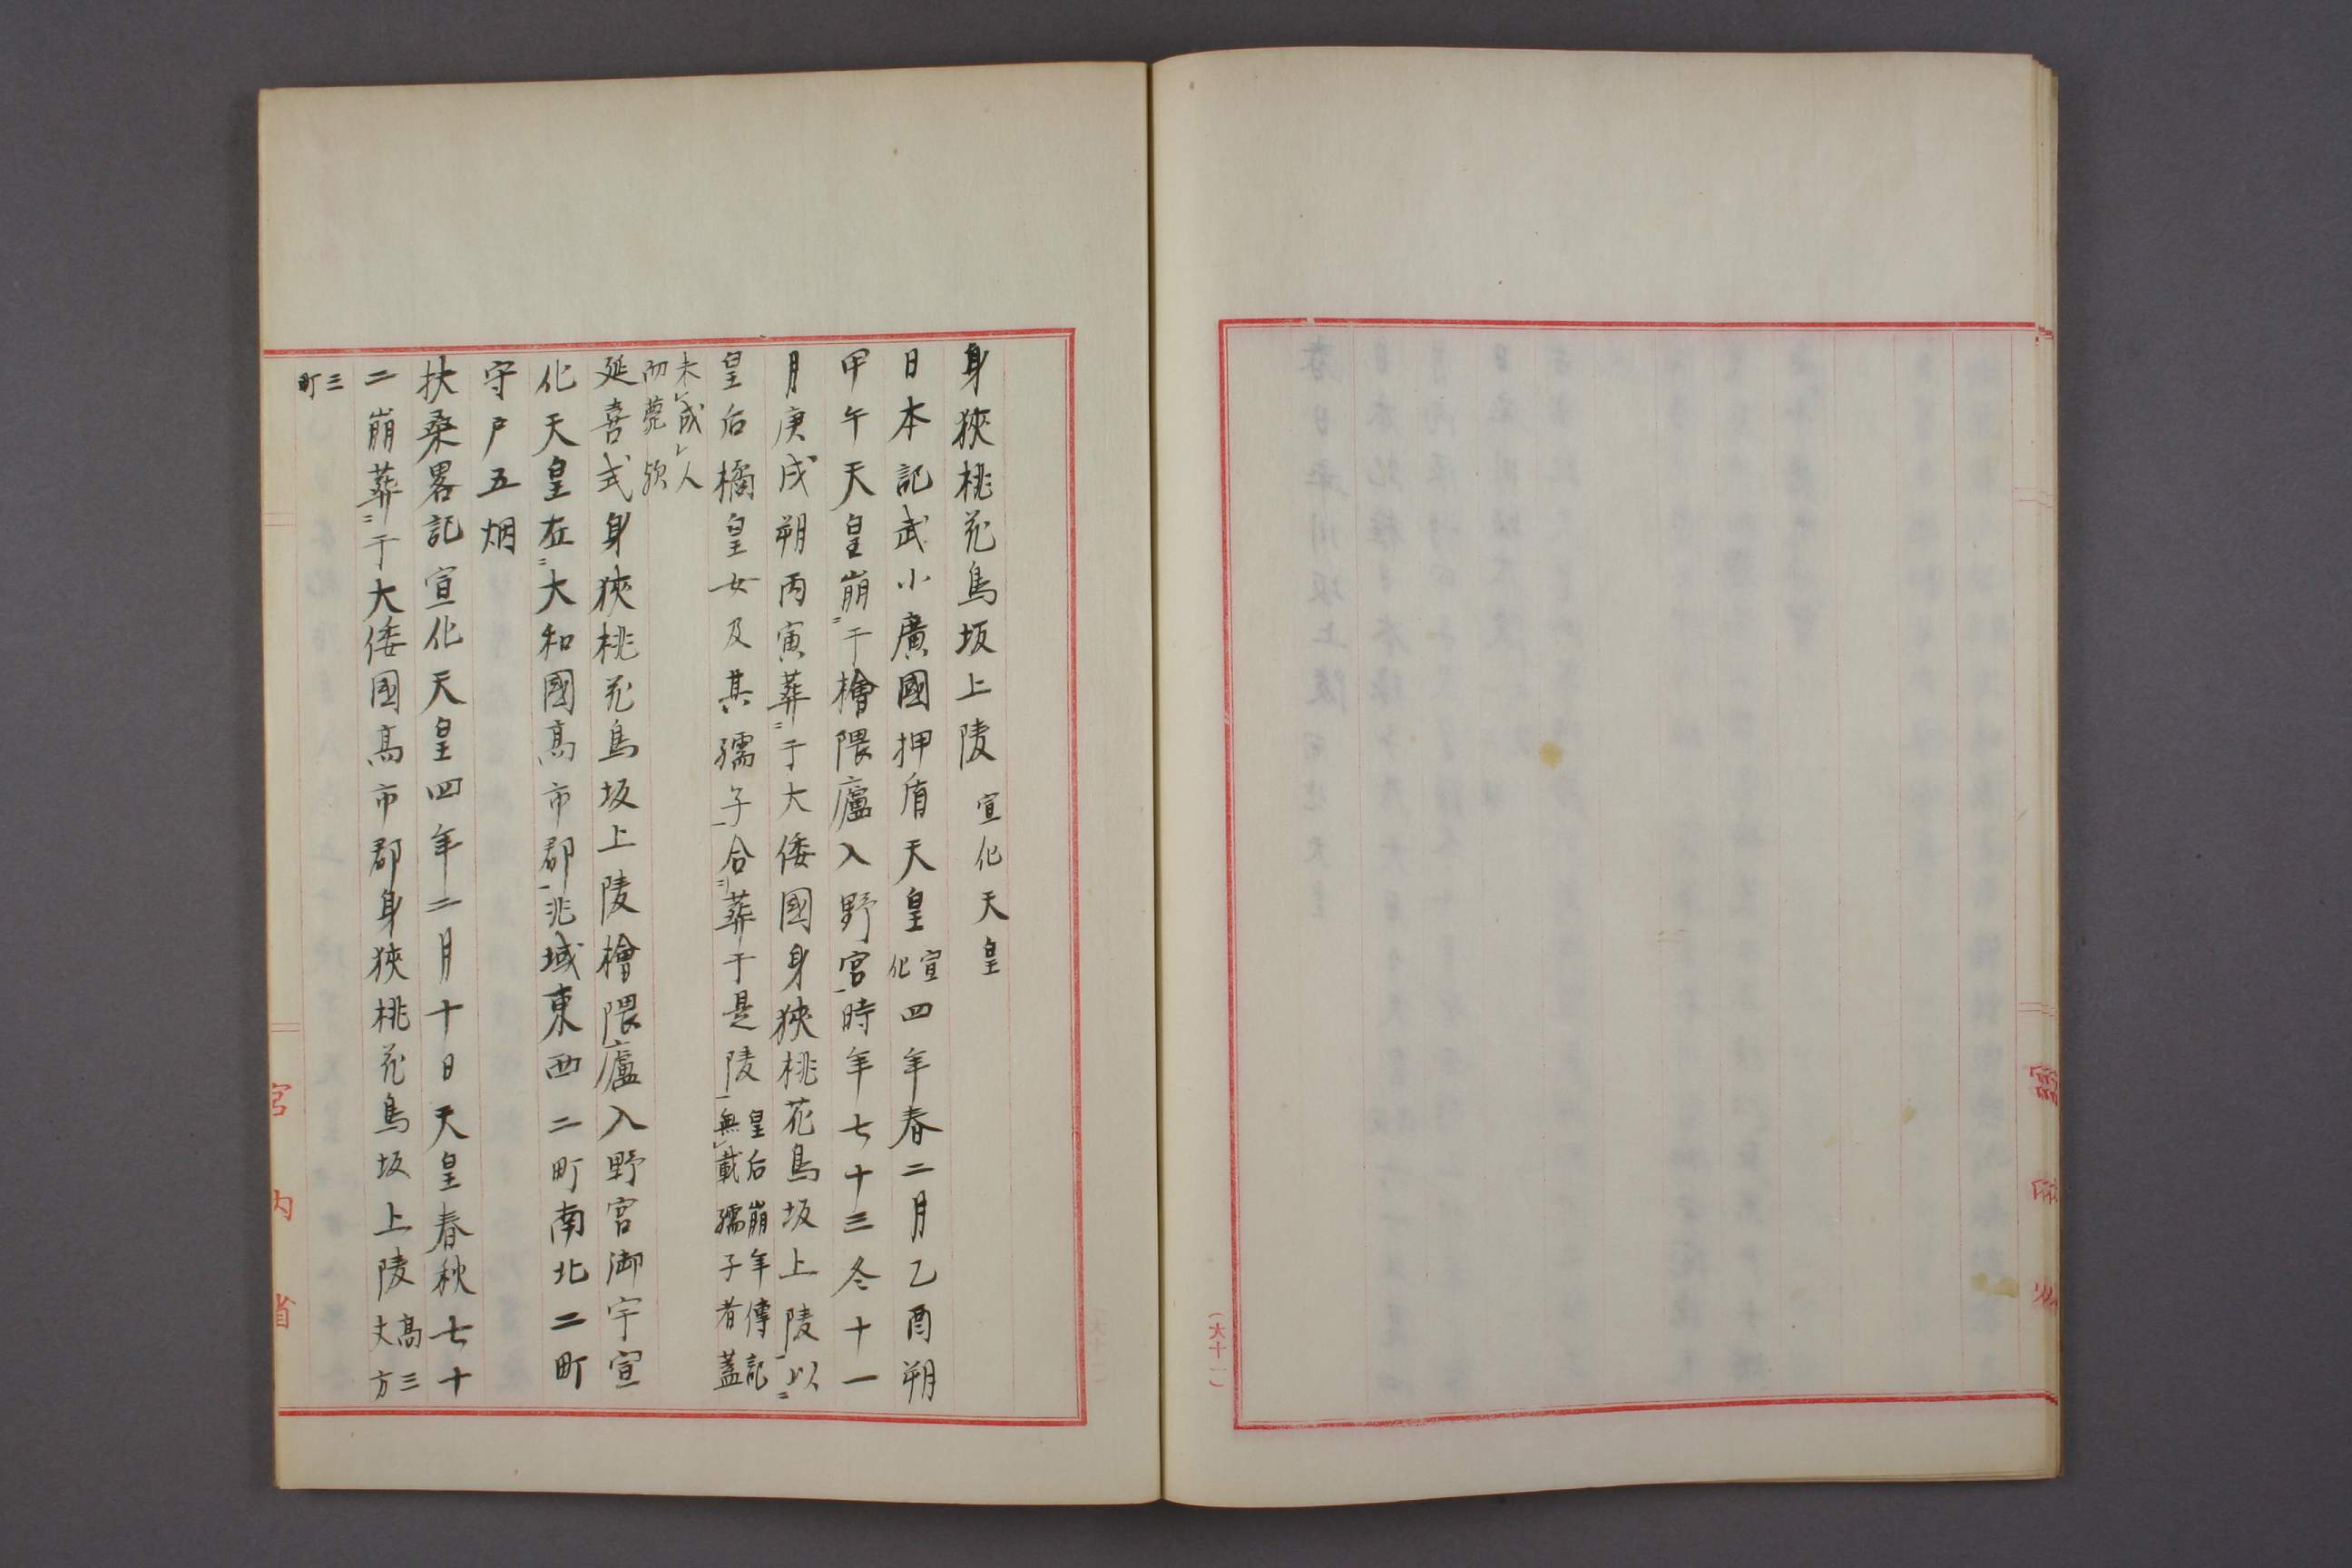 身狹桃花鳥坂上陵 宣化天皇
日本記武小廣國押盾天皇宣化四年春二月乙酉朔
甲午天皇崩于檜隈廬入野宮時年七十三冬十一
月庚戌朔丙寅葬于大倭國身狹桃花鳥坂上陵以
皇后橘皇女及其孺子合葬于是陵皇后崩年傳記無載孺子者蓋
未成人而薨歟
延喜式身狹桃花鳥坂上陵檜隈廬入野宮御宇宣
化天皇在大和國高市郡兆域東西二町南北二町
守戸五烟
扶桑畧記宣化天皇四年二月十日天皇春秋七十
二崩葬于大倭国高市郡身狹桃花鳥坂上陵高三丈方
三町
宮内省
(大十一)